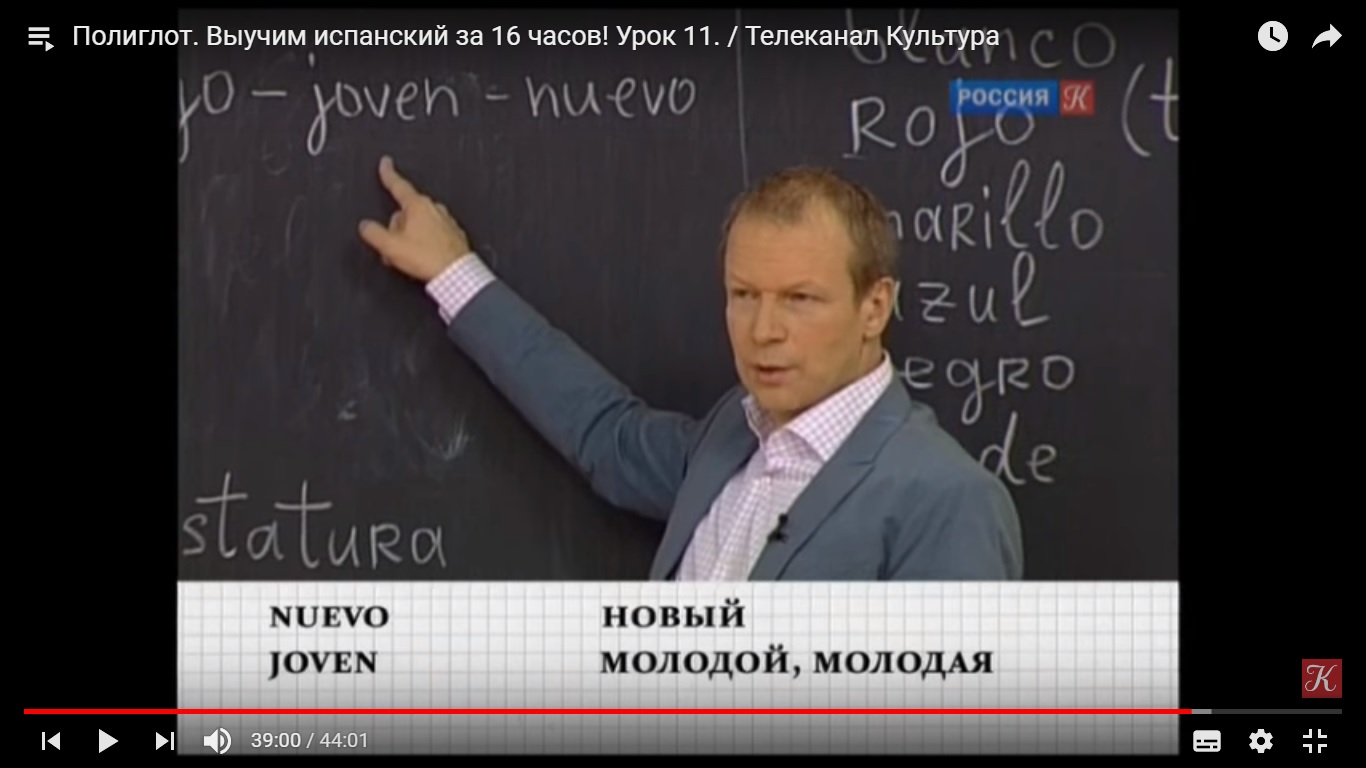 Полиглот. Выучим испанский за 16 часов! Урок 11. / Телеканал Культура
blanco
jo – joven – nuevo
РОССИЯ К
Rojo (t
marillo
azul
egro
de
statura
NUEVO НОВЫЙ
JOVEN МОЛОДОЙ, МОЛОДАЯ
К
39:00 / 44:01